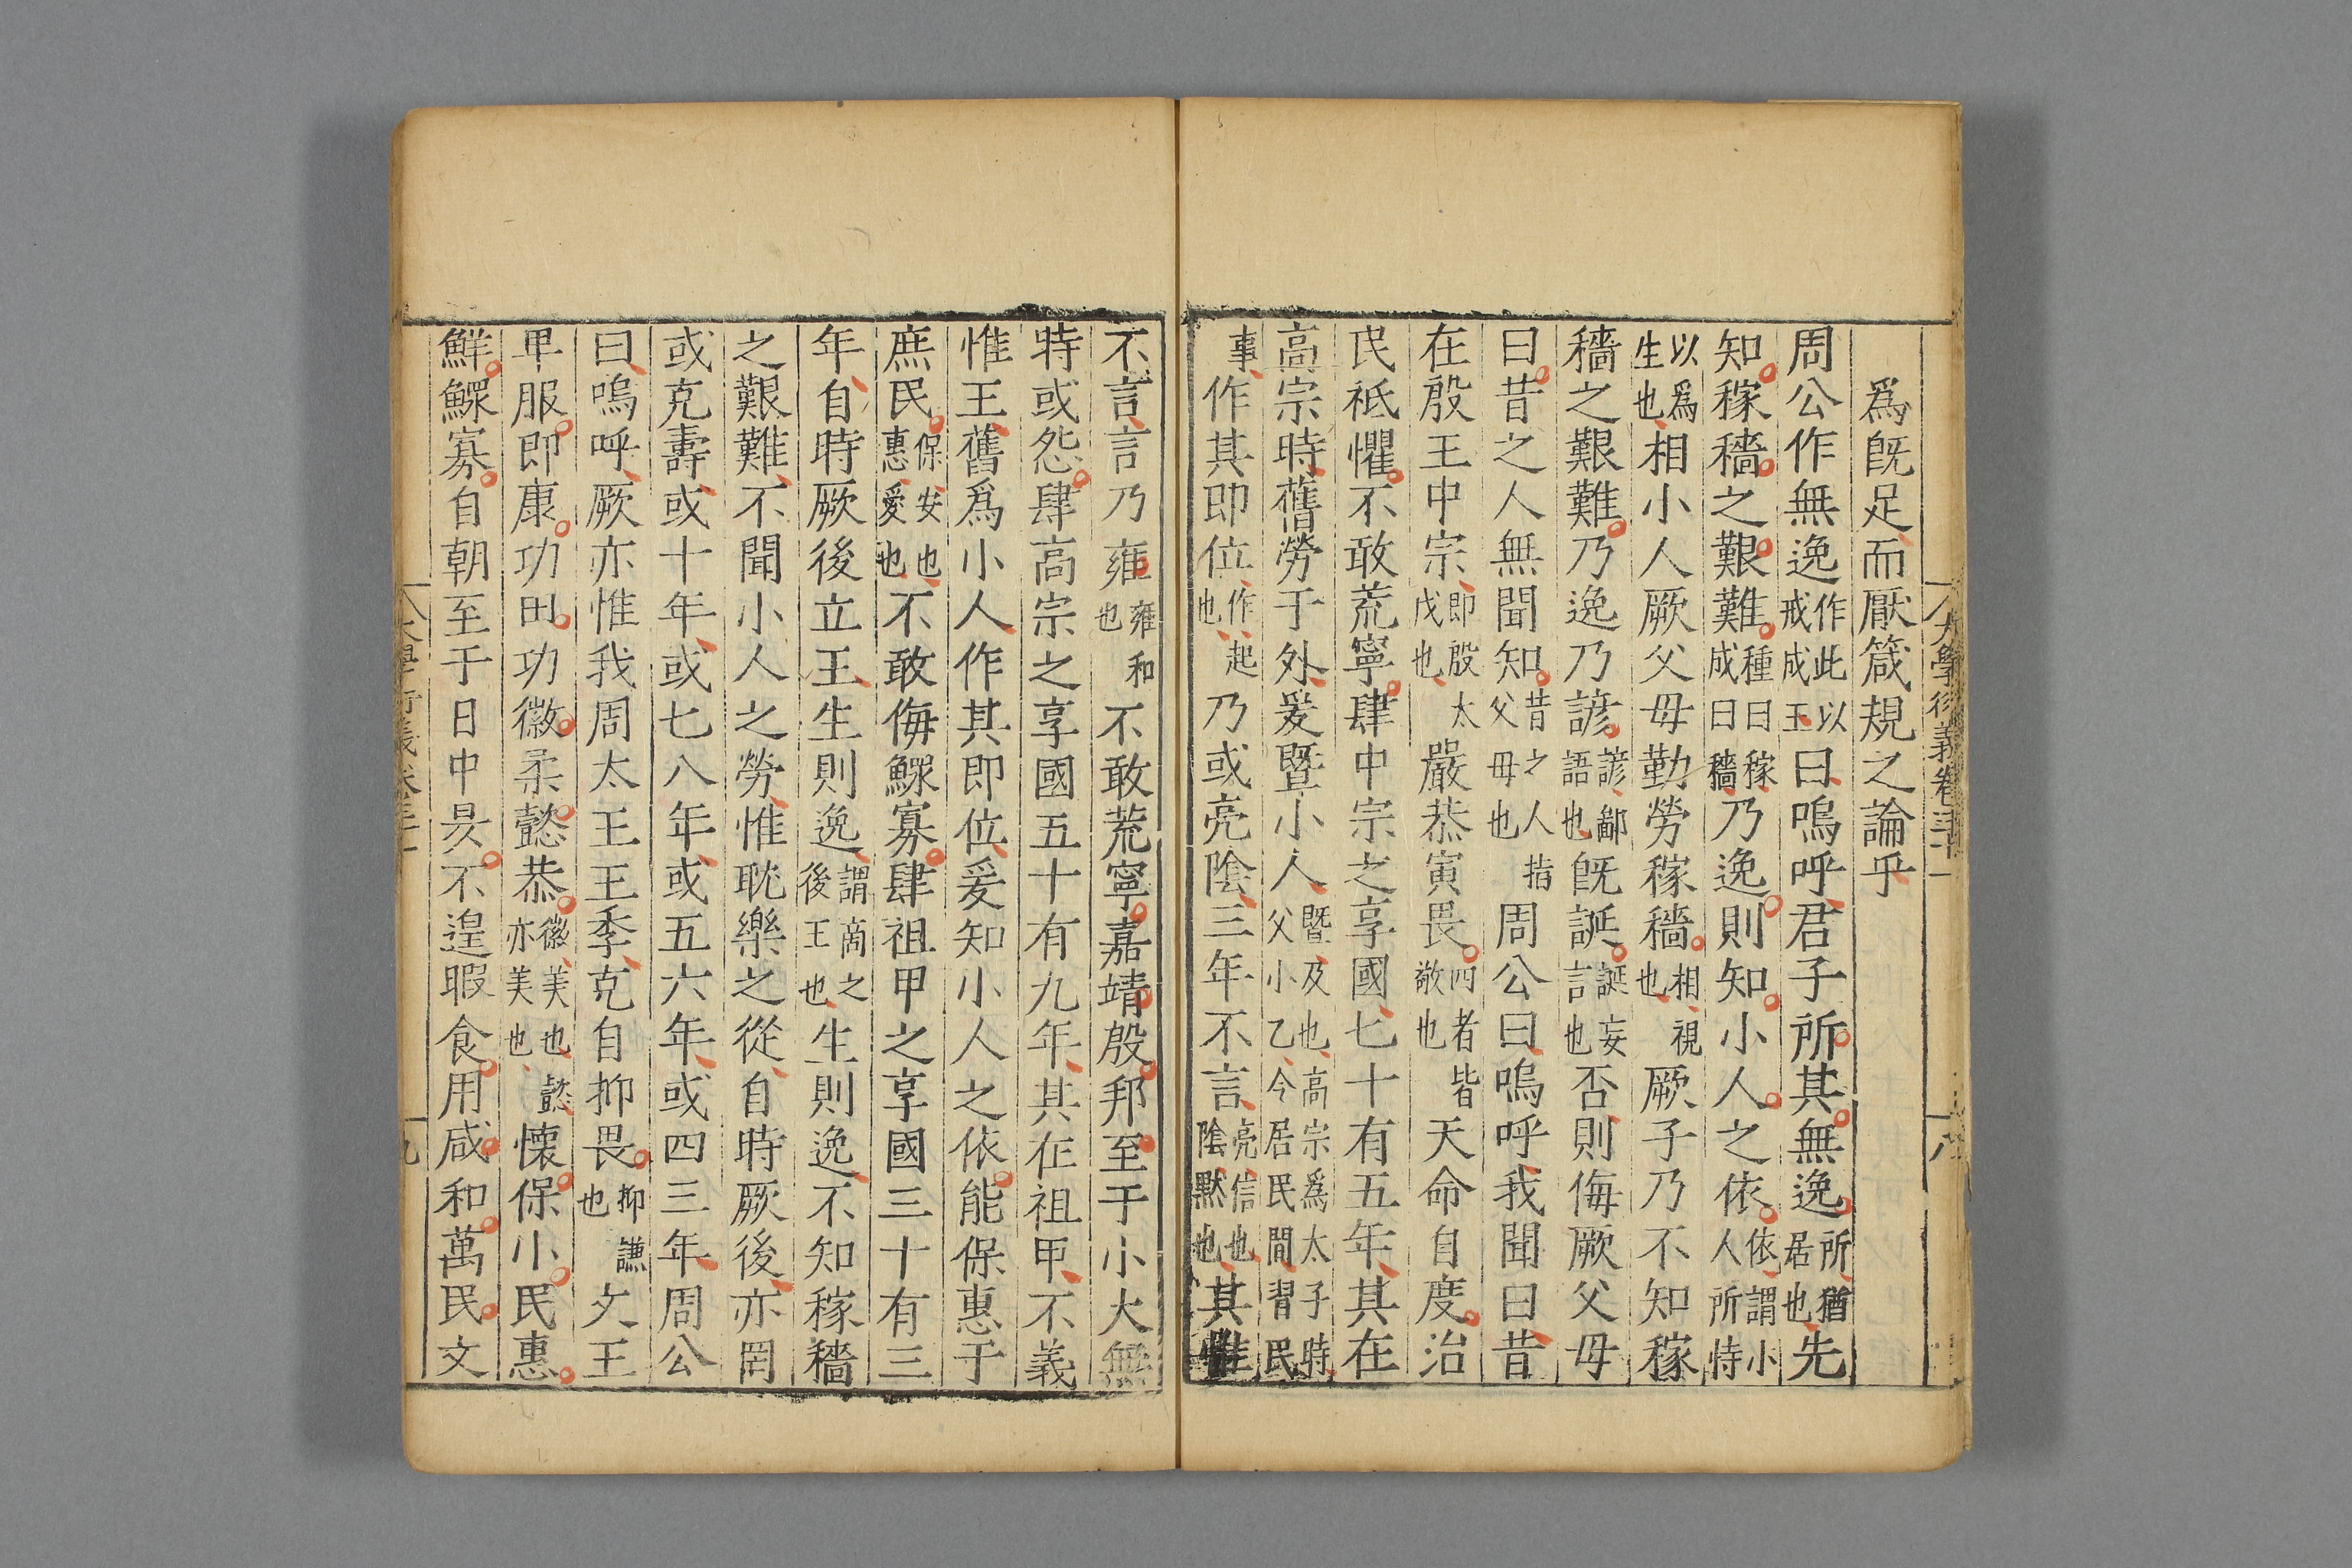 爲旣足而厭箴規之論乎
周公作無逸作此以戒成王曰嗚呼君子所其無逸所猶居也先
知稼穡之艱難種曰稼成曰穡乃逸則知小人之依依謂小人所恃
以爲生也爲相小人厥父母勤勞稼穡相視也厥子乃不知稼
穡之艱難乃逸乃諺諺鄙語也旣誕誕妄言也否則侮厥父母
曰昔之人無聞知昔之人指父母也周公曰嗚呼我聞曰昔
在殷王中宗即殷太戊也嚴恭寅畏四者皆敬也天命自度治
民祗懼不敢荒寧肆中宗之享國七十有五年其在
高宗時舊勞于外爰暨小人暨及也高宗爲太子時父小乙令居民間習民
事作其即位作起也乃或亮陰三年不言亮信也陰默也其惟
不言言乃雍雍和也不敢荒寧嘉靖殷邦至于小大無
時或怨肆高宗之享國五十有九年其在祖甲不義
惟王舊爲小人作其即位爰知小人之依能保惠于
庶民保安也惠愛也不敢侮鰥寡肆祖甲之享國三十有三
年自時厥後立王生則逸謂商之後王也生則逸不知稼穡
之艱難不聞小人之勞惟耽樂之從自時厥後亦罔
或克壽或十年或七八年或五六年或四三年周公
曰嗚呼厥亦惟我周太王王季克自抑畏抑謙也文王
卑服即康功田功徽柔懿恭徽美也懿亦美也懷保小民惠
鮮鰥寡自朝至于日中昃不遑暇食用咸和萬民文